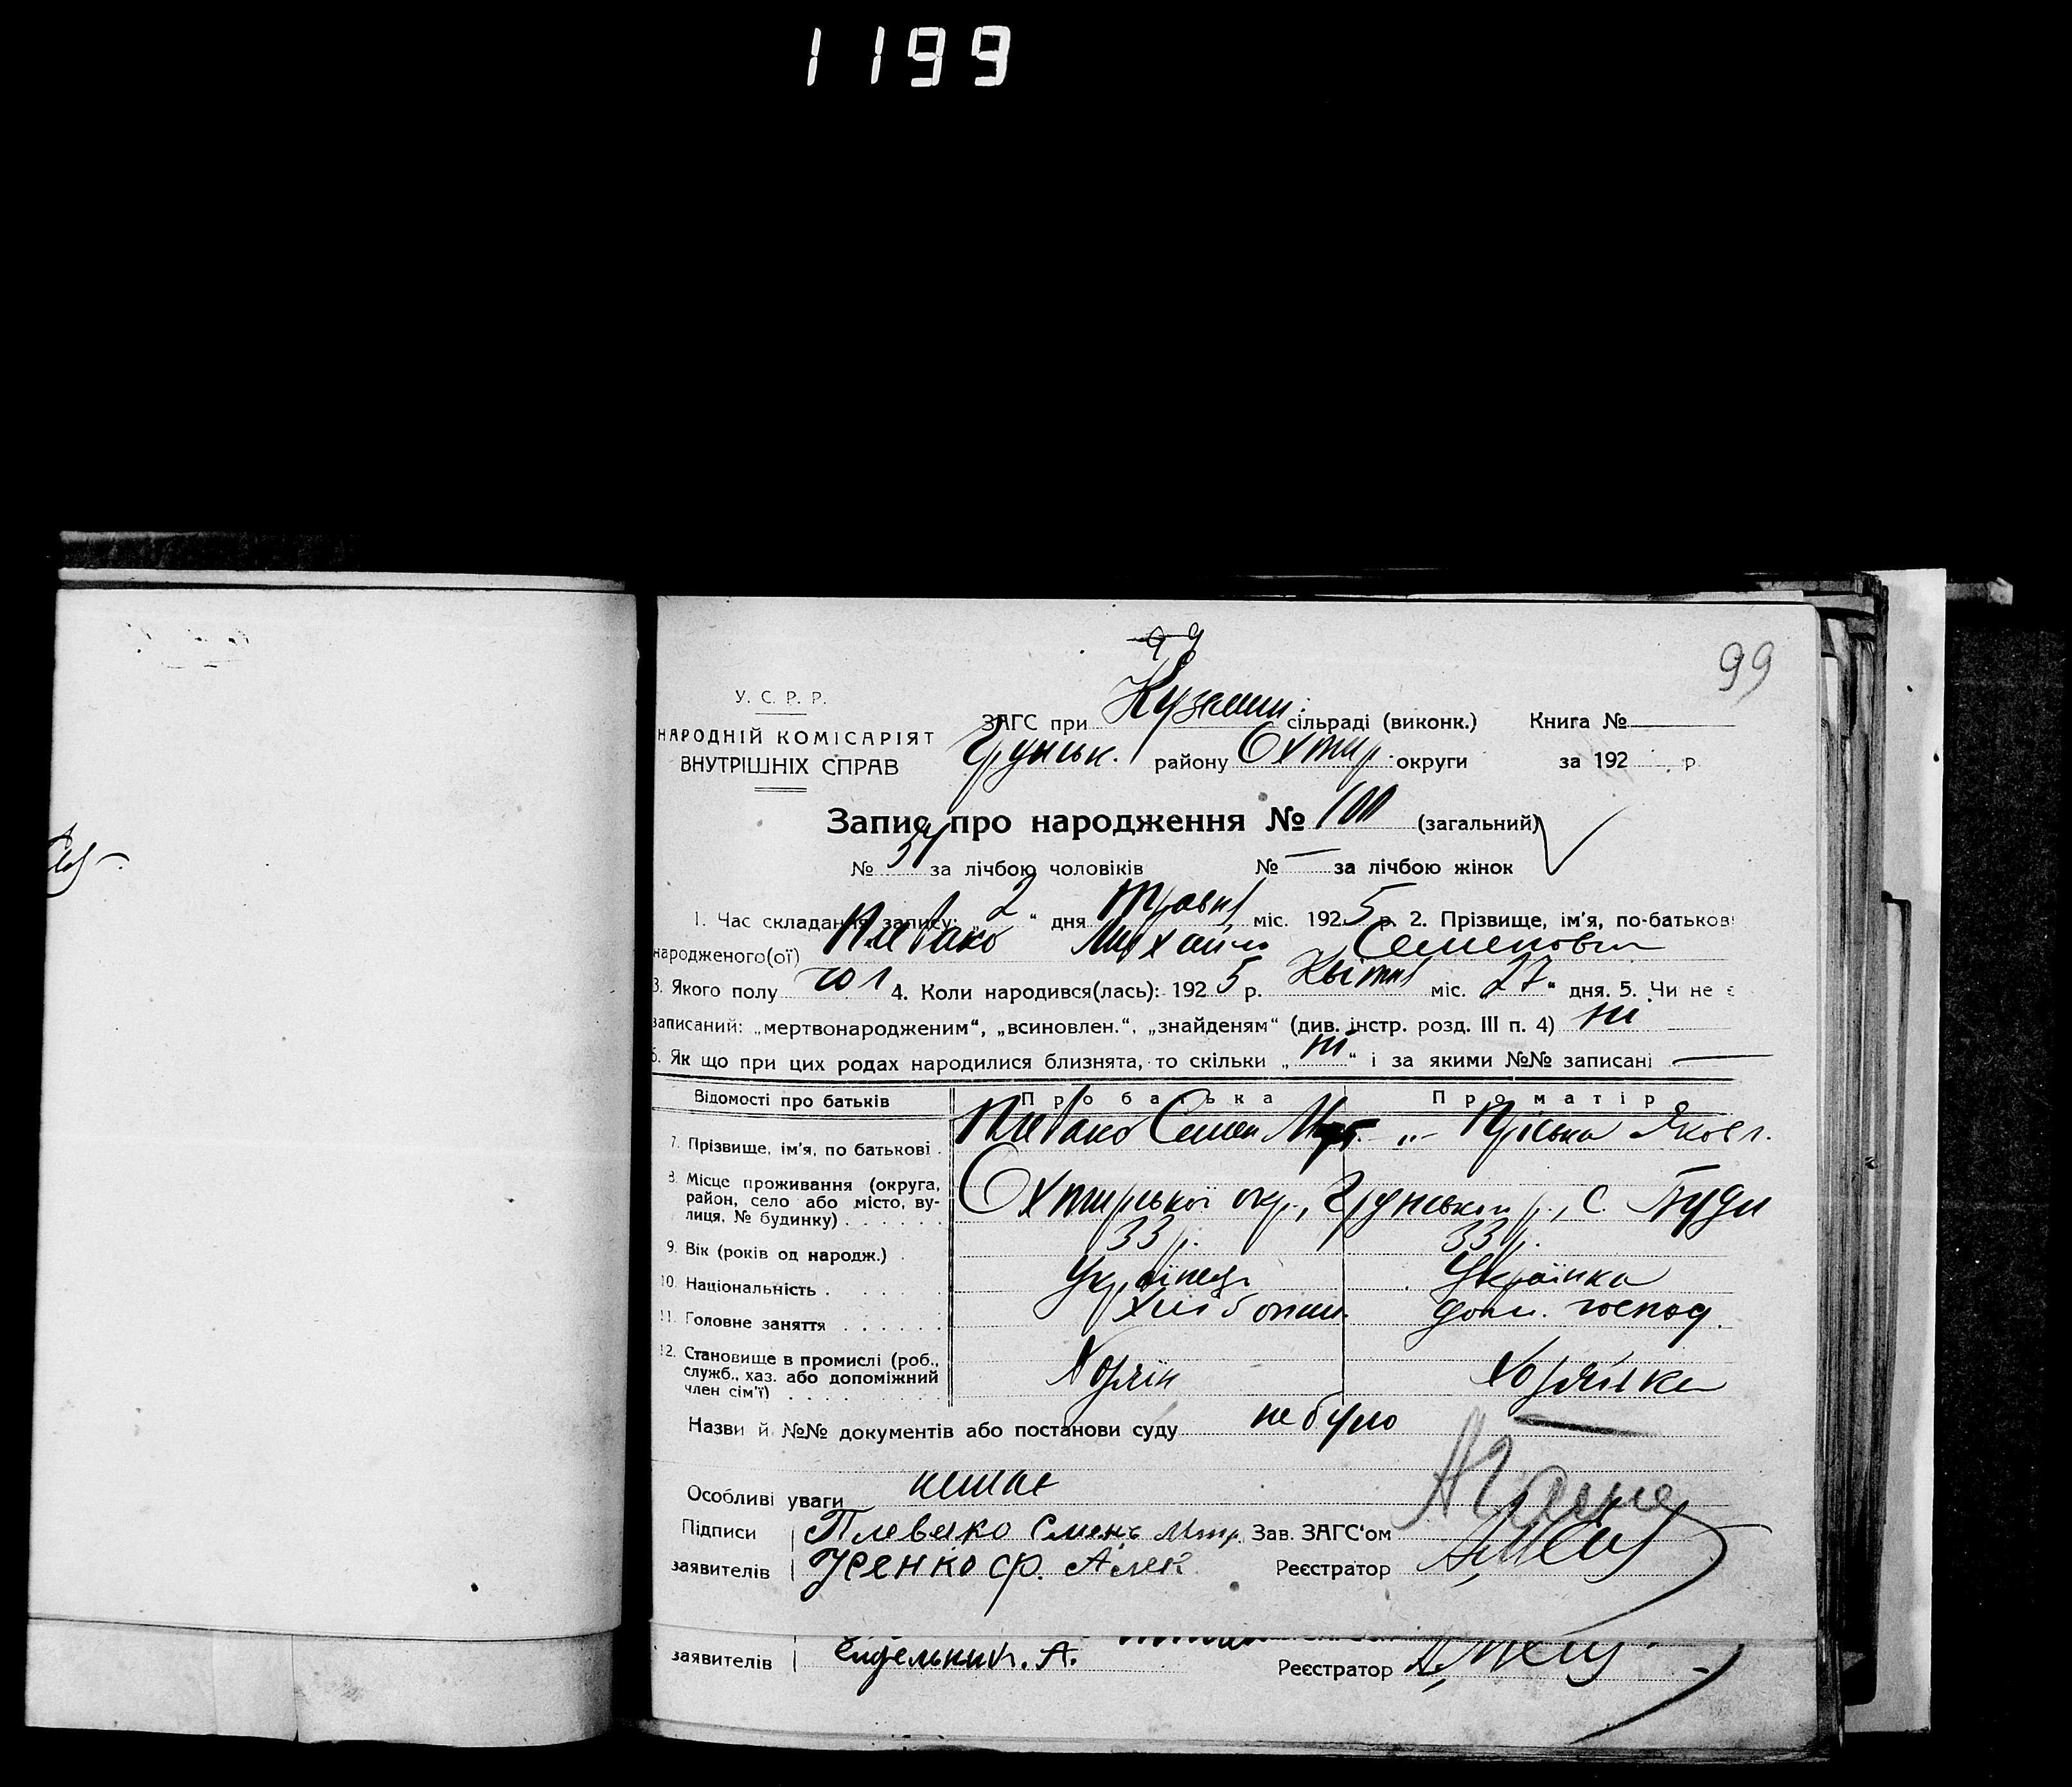 1199
99
99
У. С. Р. Р.
НАРОДНІЙ КОМІСАРІЯТ
ВНУТРІШНІХ СПРАВ
ЗАГС при Куземин. сільраді (виконк.) Книга №
Грунськ. району Охтир. округи за 192 р.
Запис про народження № 100 (загальний)
№ 54 за лічбою чоловіків № — за лічбою жінок
1. Час складання запису: „2“ дня Травня міс. 1925 р. 2. Прізвище, ім'я, по-батькові
народженого(ої) Плевако Михайло Семенович
3. Якого полу чол 4. Коли народився(лась): 1925 р. Квітня міс. 27“ дня. 5. Чи не є
записаний: „мертвонародженим“, „всиновлен.“, „знайденям“ (див. інстр. розд. III п. 4) ні
6. Як що при цих родах народилися близнята, то скільки „ні“ і за якими №№ записані —
Відомості про батьків Про батька Про матір
7. Прізвище, ім'я, по батькові . Плевако Семен Митр. -„- Пріська Яковл.
8. Місце проживання (округа, район, село або місто, вулиця, № будинку) . . . . . . Охтирської окр., Грунського р., с. Буди
9. Вік (років од народж.) . 33 р. 33 р.
10. Національність . Українець Українка
11. Головне заняття . . . . . . Хлібопаш. дом. господ.
12. Становище в промислі (роб., служб., хаз. або допоміжний член сім'ї) . . . . Хозяїн Хозяйка
Назви й №№ документів або постанови суду не було
Особливі уваги немає
Підписи Плевако Смень Митр. Зав. ЗАГС'ом
заявителів Усенко ф. Алек Реєстратор
заявителів А. Реєстратор